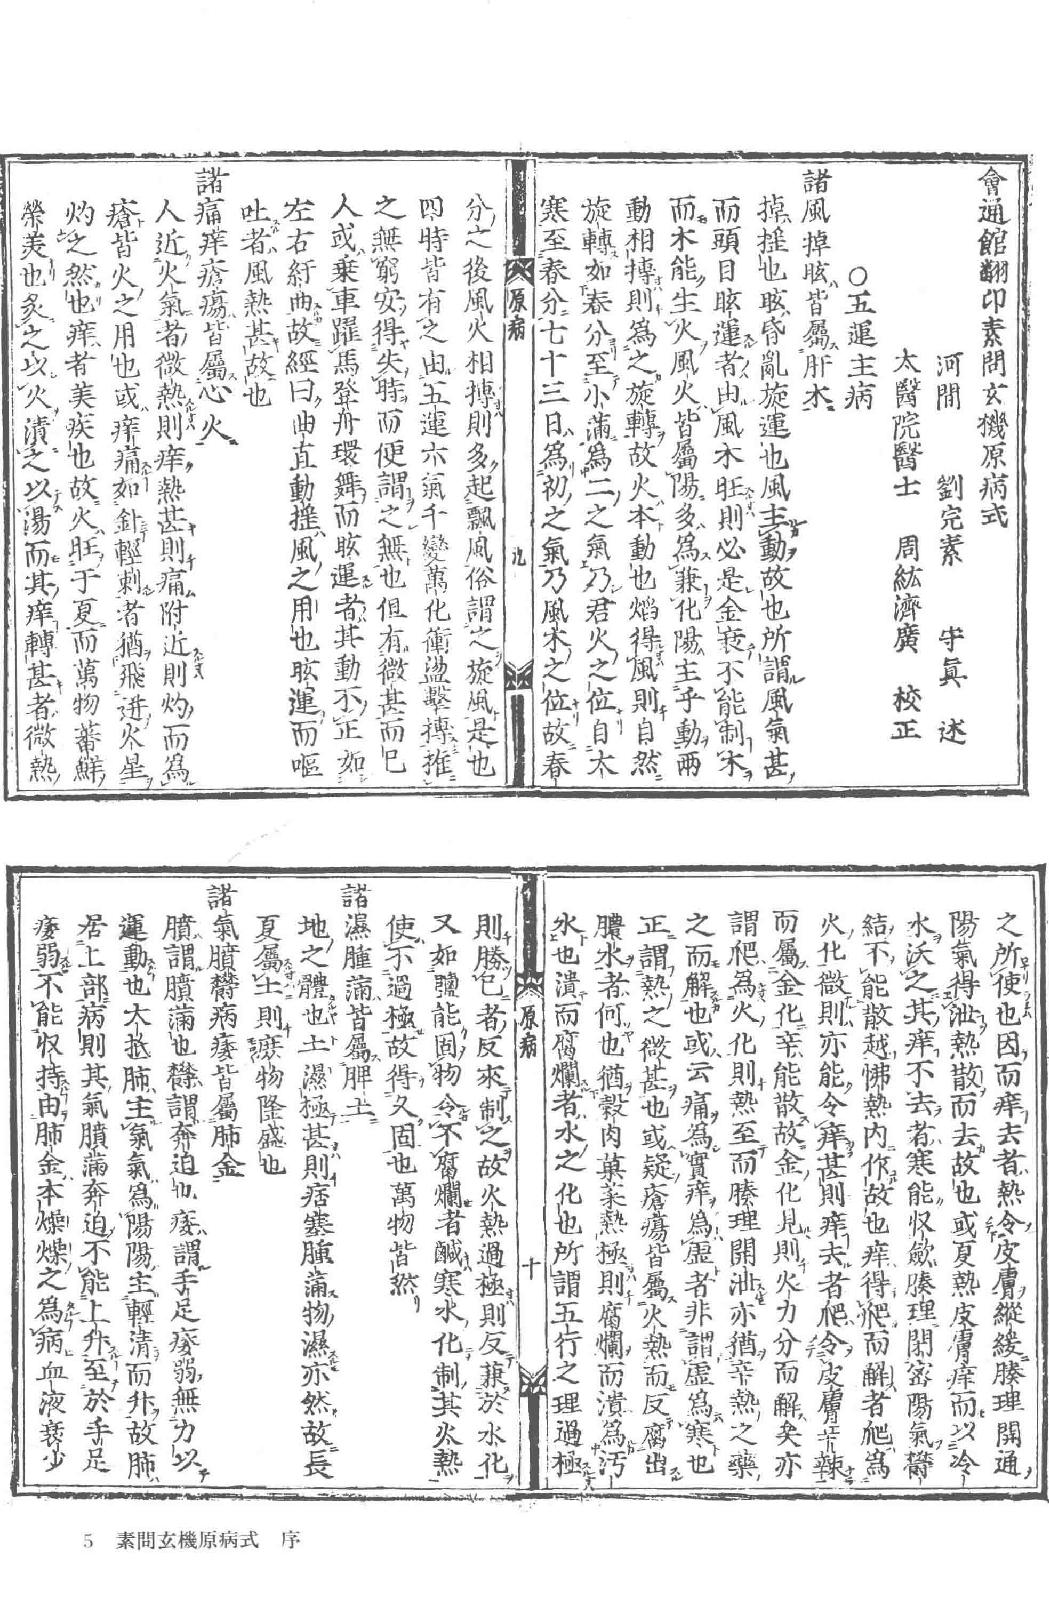 會通館翻印素問玄機原病式
河間 劉完素 守眞 述
太醫院醫士 周紘濟廣 校正
〇五運主病
諸風掉眩皆屬肝木
掉揺也眩昏亂旋運也風主動故也所謂風氣甚
而頭目眩運者由風木旺則必是金衰不能制木
而木能生火風火皆屬陽多為兼化陽主乎動兩
動相搏則為之旋轉故火本動也焰得風則自然
旋轉如春分至小滿為二之氣乃君火之位自大
寒至春分七十三日為初之氣乃風木之位故春
原病
九
分之後風火相搏則多起飄風俗謂之旋風是也
四時皆有之由五運六氣千變萬化衝盪擊搏推
之無窮安得失時而便謂之無也但有微甚而已
人或乗車躍馬登舟環舞而眩運者其動不正如
左右紆曲故經曰曲直動揺風之用也眩運而嘔
吐者風熱甚故也
諸痛痒瘡瘍皆屬心火
人近火氣者微熱則痒熱甚則痛附近則灼而為
瘡皆火之用也或痒痛如針輕刺者猶飛迸火星
灼之然也痒者美疾也故火旺于夏而萬物蕃鮮
榮美也炙之以火漬之以湯而其痒轉甚者微熱
之所使也因而痒去者熱令皮膚縱緩腠理開通
陽氣得泄熱散而去故也或夏熱皮膚痒而以冷
水沃之其痒不去者寒能收斂腠理閉密陽氣鬱
結不能散越怫熱內作故也痒得爬而解者爬為
火化微則亦能令痒甚則痒去者爬令皮膚辛辣
而屬金化辛能散故金化見則火力分而解矣亦
謂爬為火化則熱至而腠理開泄亦猶辛熱之藥
之而解也或云痛為實痒為虛者非謂虛為寒也
正謂熱之微甚也或疑瘡瘍皆屬火熱而反腐出
膿水者何也猶穀肉菓菜熱極則腐爛而潰為汚
水也潰而腐爛者水之化也所謂五行之理過極
原病
十
則勝己者反來制之故火熱過極則反兼於水化
又如鹽能固物令不腐爛者鹹寒水化制其火熱
使不過極故得久固也萬物皆然
諸濕腫滿皆屬脾土
地之體也土濕極甚則痞塞腫滿物濕亦然故長
夏屬土則庶物隆盛也
諸氣膹鬱病痿皆屬肺金
膹謂膹滿也鬱謂奔迫也痿謂手足痿弱無力以
運動也大抵肺主氣氣為陽陽主輕清而升故肺
居上部病則其氣膹滿奔迫不能上升至於手足
痿弱不能収持由肺金本燥燥之為病血液衰少
5 素問玄機原病式 序